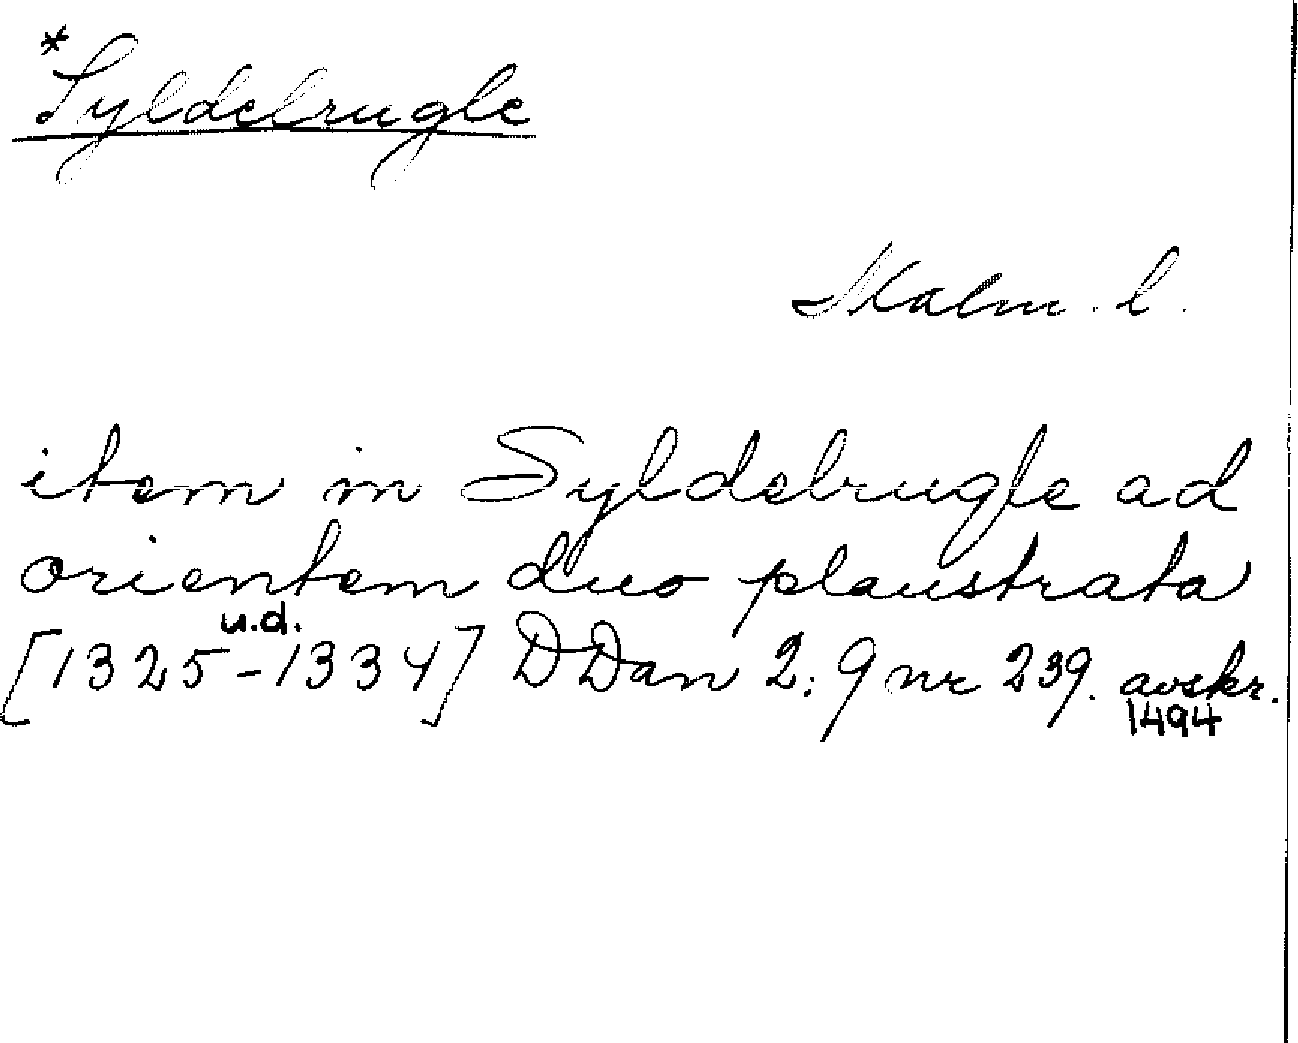 *Syldebrugle
Malm. l.
item in Syldebrugle ad
orientem duo plaustrata
u.d.
[1325-1334] DDan 2:9 nr 239. avskr.
1494